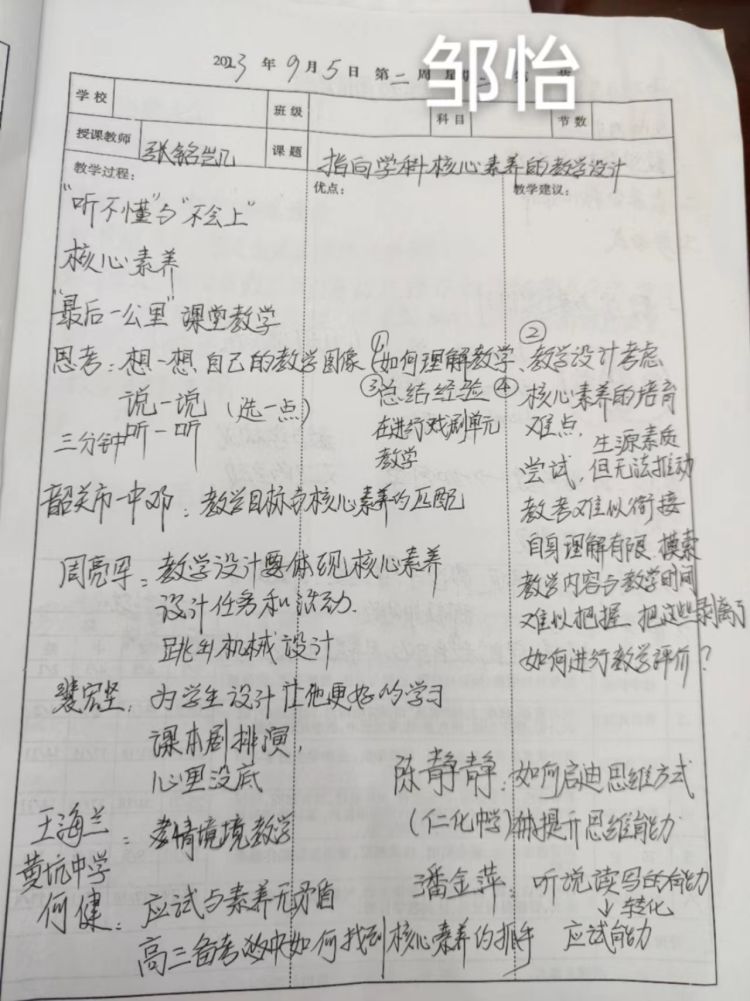 邹怡
2023年9月5日 第二周 星期
学校 班级 科目 节数
授课教师 张铭凯 课题 指向学科核心素养的教学设计
教学过程： 优点： 教学建议：
"听不懂"与"不会上"
核心素养
"最后一公里"课堂教学
思考：想一想，自己的教学图像
说一说（选一点）
三分钟听一听
①如何理解教学、
③总结经验
在进行戏剧单元
教学
②
教学设计考虑
④核心素养的培育
难点，
生源素质
尝试，但无法推动
教考难以衔接
自身理解有限、摸索
教学内容与教学时间
难以把握，把这些剥离了
如何进行教学评价？
韶关市一中邓：教学目标与核心素养的匹配
周亮军：教学设计要体现核心素养
设计任务和活动.
跳出机械设计
裴宏坚，为学生设计让他更好的学习
课本剧排演，
心里没底
陈静静：如何启迪思维方式
（仁化中学）提升思维能力
王海兰：情境教学
黄坑中学
潘金萍：听说读写的能力
↓转化
应试能力
何健：应试与素养无矛盾
高三备考如何找到核心素养的抓手